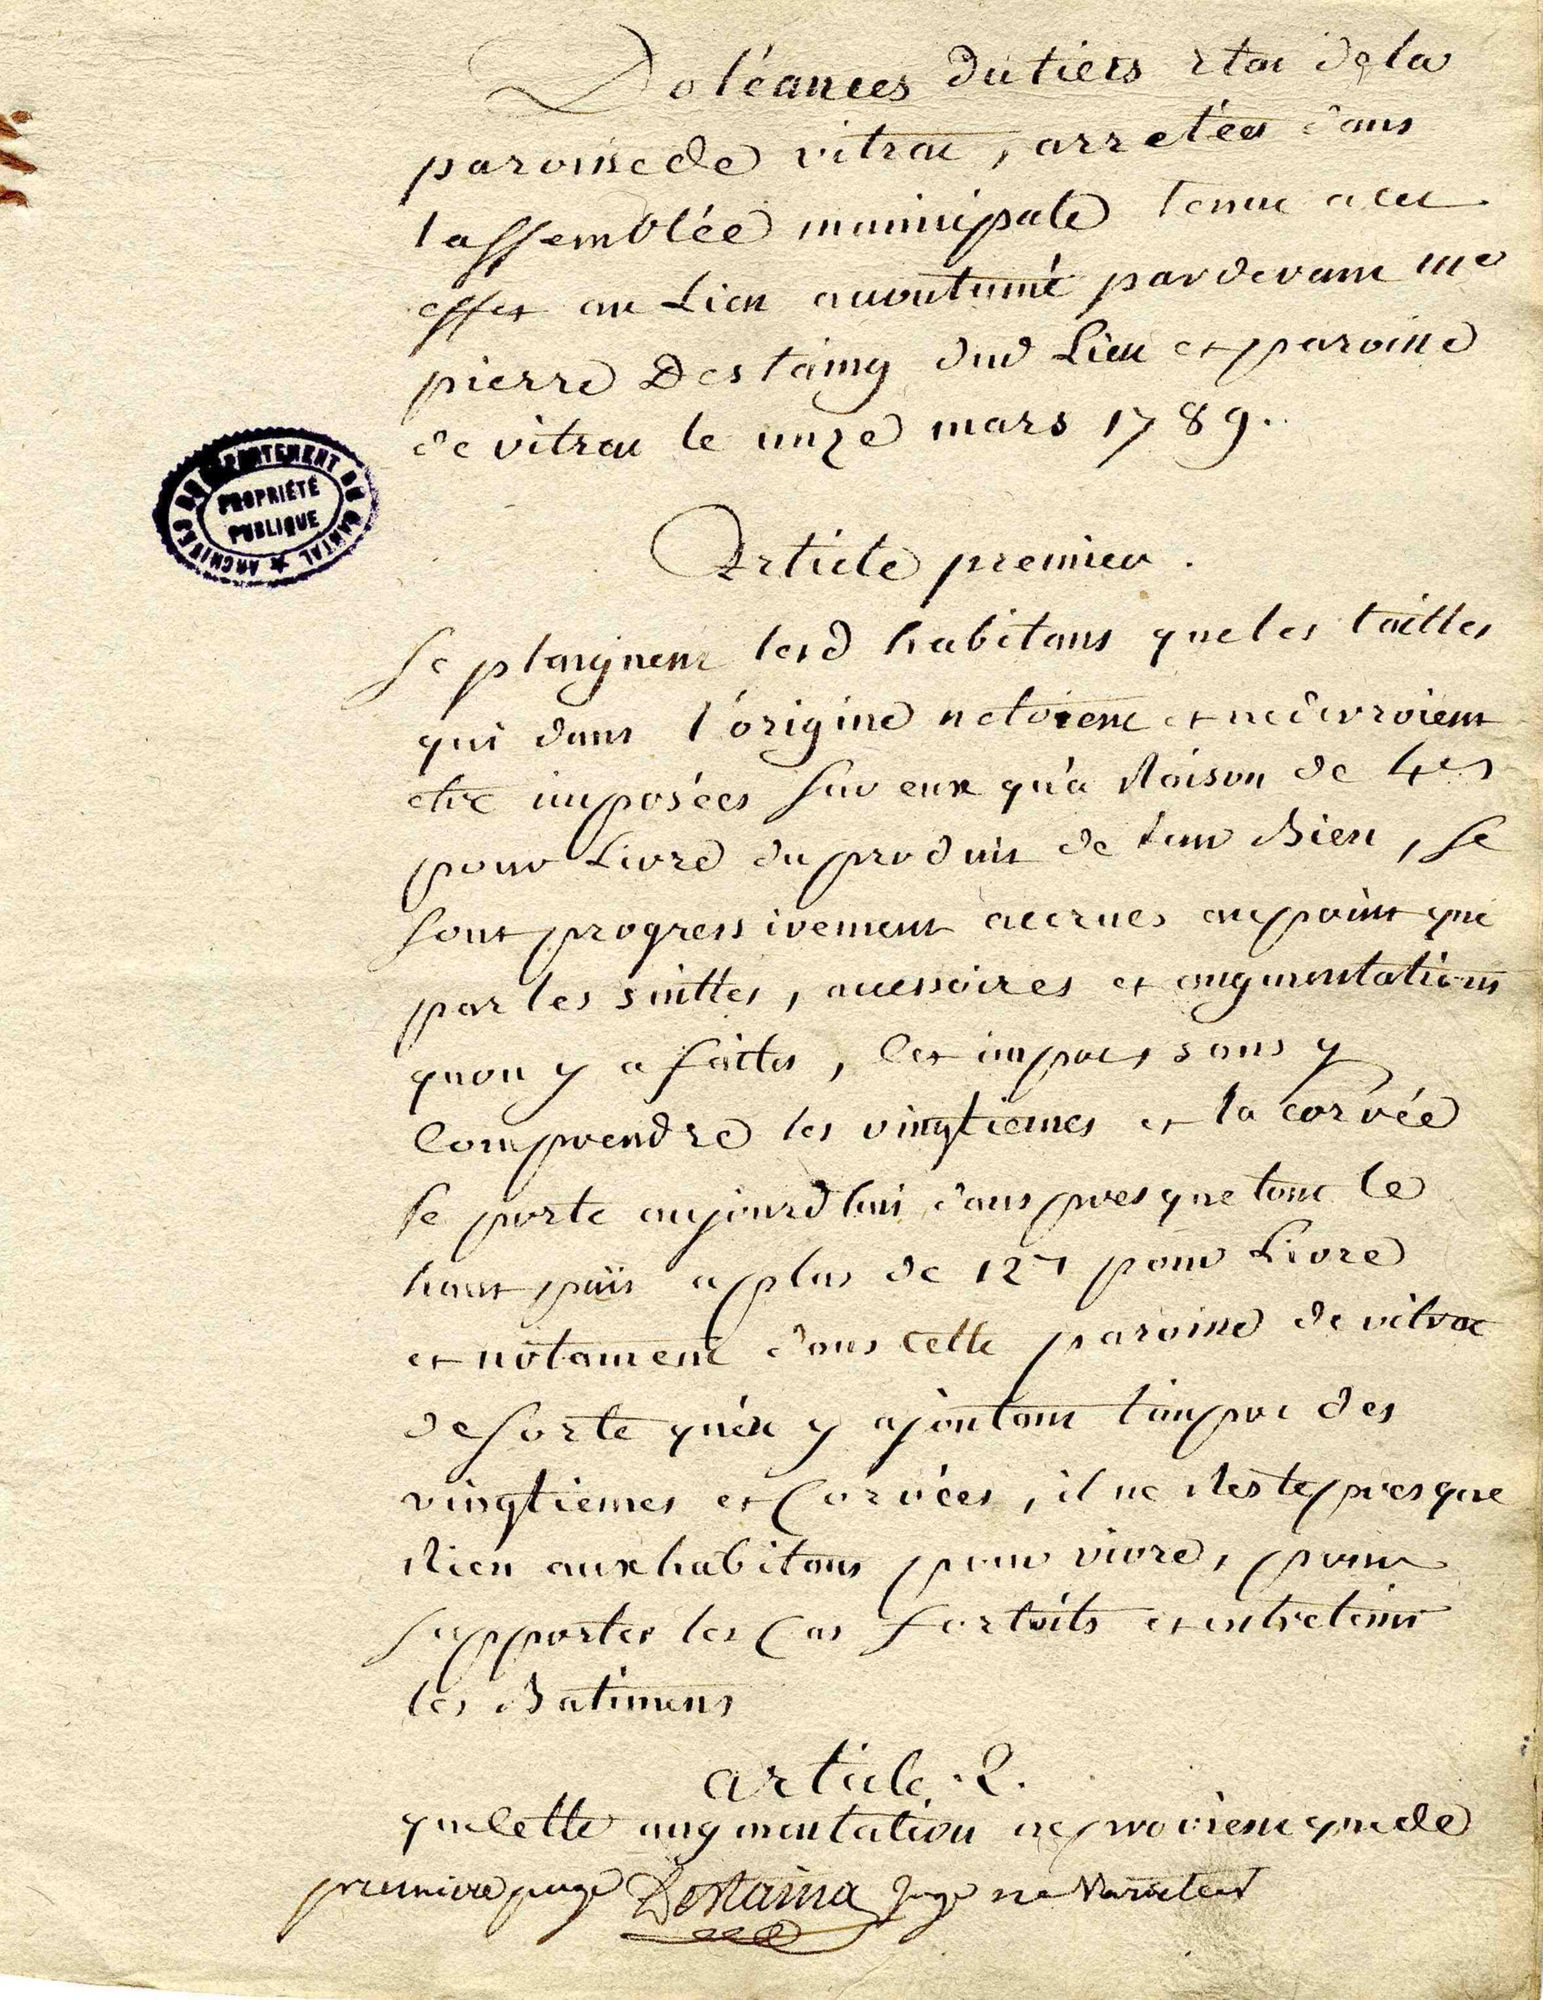 Doléances du tiers etat de la
paroisse de vitrac, arretées dans
lassemblée municipale tenue a cet
effet au Lieu accoutumé pardevant me
pierre Destaing dud Lieu et paroisse
de vitrac le unze mars 1789.
ARCHIVES DU DÉPARTEMENT DU CANTAL
PROPRIÉTÉ
PUBLIQUE
Article premier.
Se plaignent lesd habitans que les tailles
qui dans l'origine netoient et ne devroient
etre imposées sur eux qu'a Raison de 4s
pour Livre du produit de leur Bien, se
sont progressivement accrues au point que
par les suittes, accessoires et augmentations
quon y a faites, cet impot sans y
Comprendre les vingtiemes et la corvée
se porte aujourdhui dans presque tout le
haut païs a plus de 12s pour Livre
et notament dans cette paroisse de vitrac
de sorte qu'en y ajoutant limpot des
vingtiemes et Corvées, il ne Reste presque
Rien aux habitans pour vivre, pour
supporter les Cas fortuits et entretenir
les Batimens
article .2.
que Cette augmentation ne provient que de
premiere page Destaing Juge ne varietur